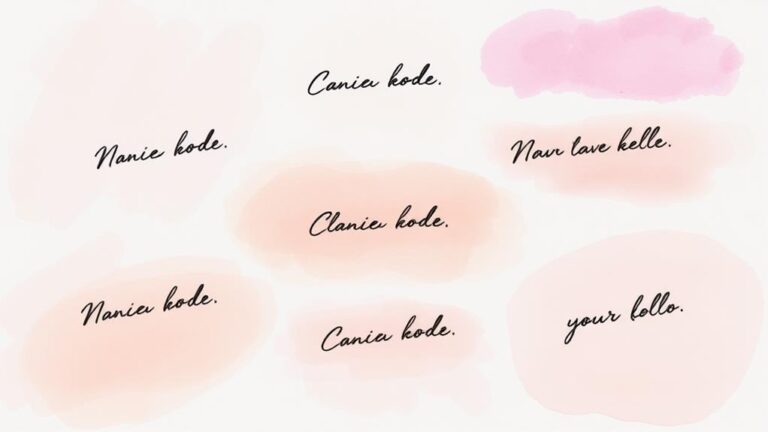 Canier kode.
Nanie kode.
Navr lave kelle.
Clanier kode.
Nanier kode.
Canier kode.
your follo.